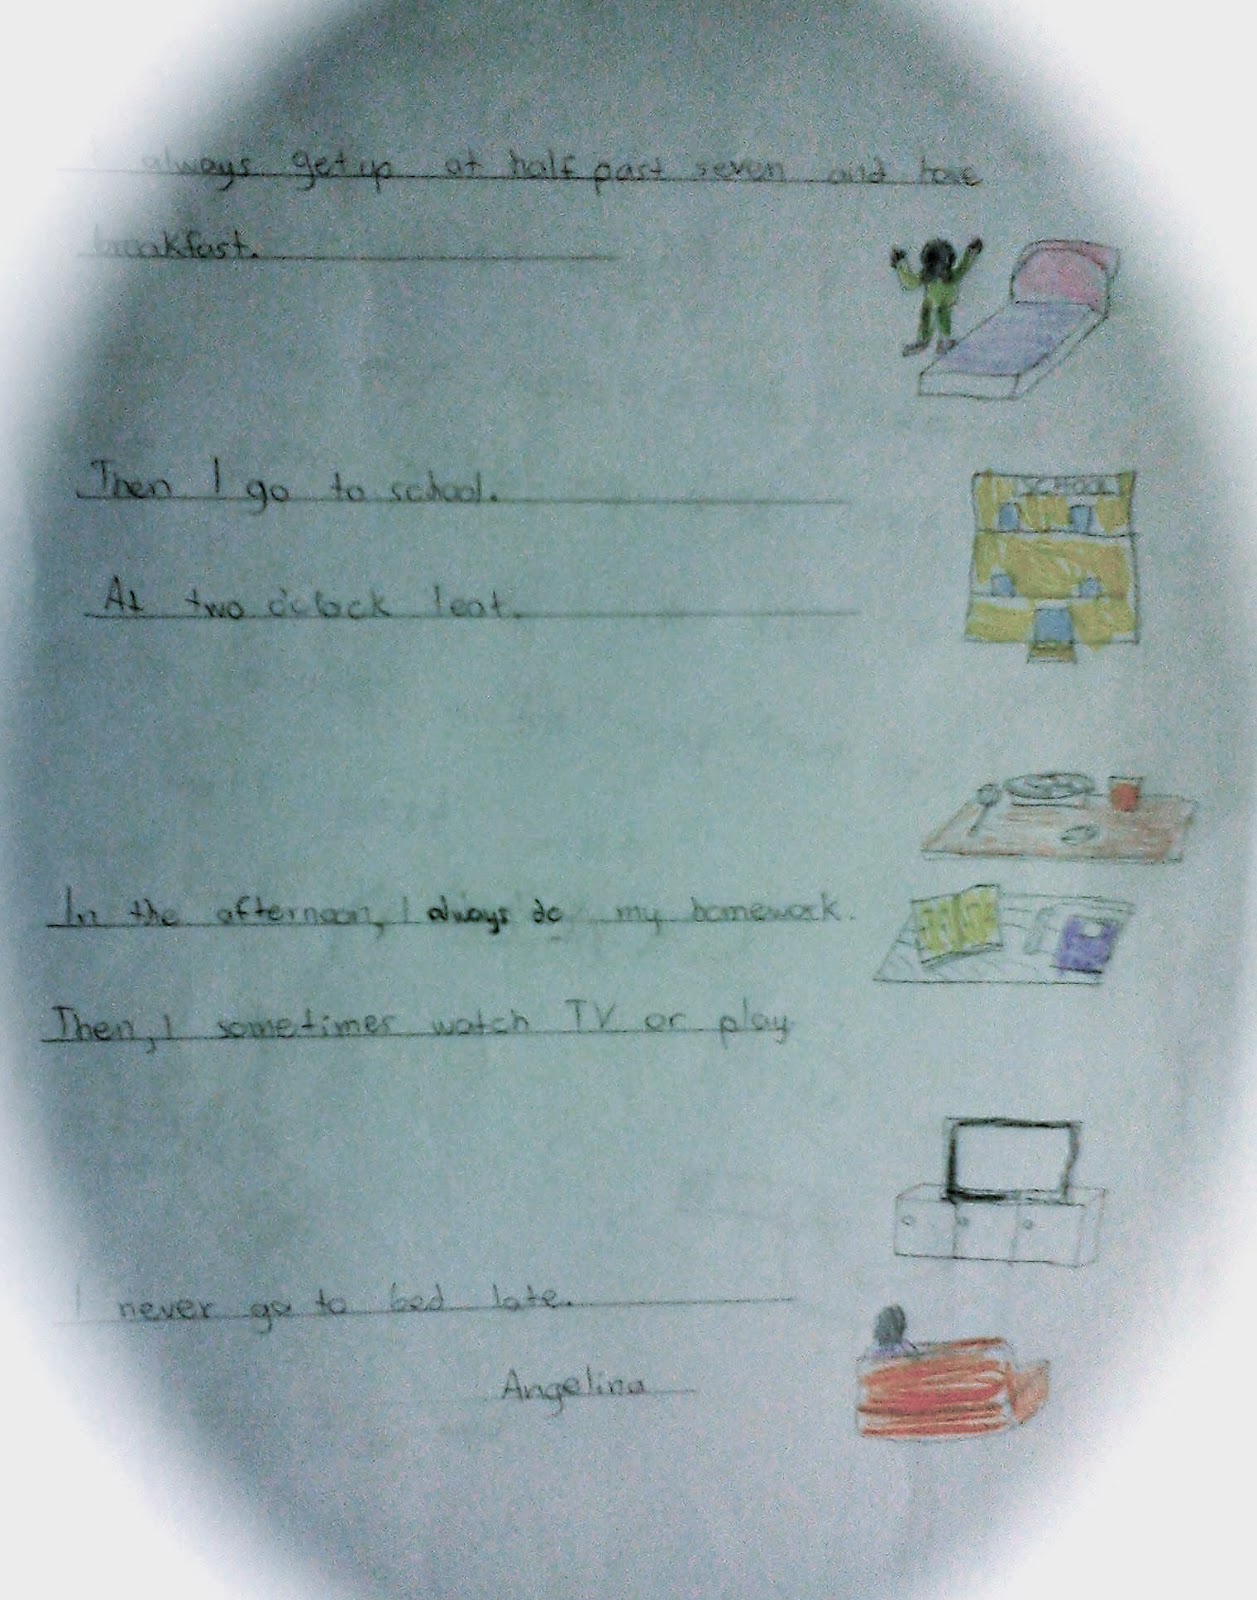 I always get up at half past seven and have
breakfast.
Then I go to school.
SCHOOL
At two o'clock I eat.
In the afternoon, I always do my homework.
Then, I sometimes watch TV or play
I never go to bed late.
Angelina